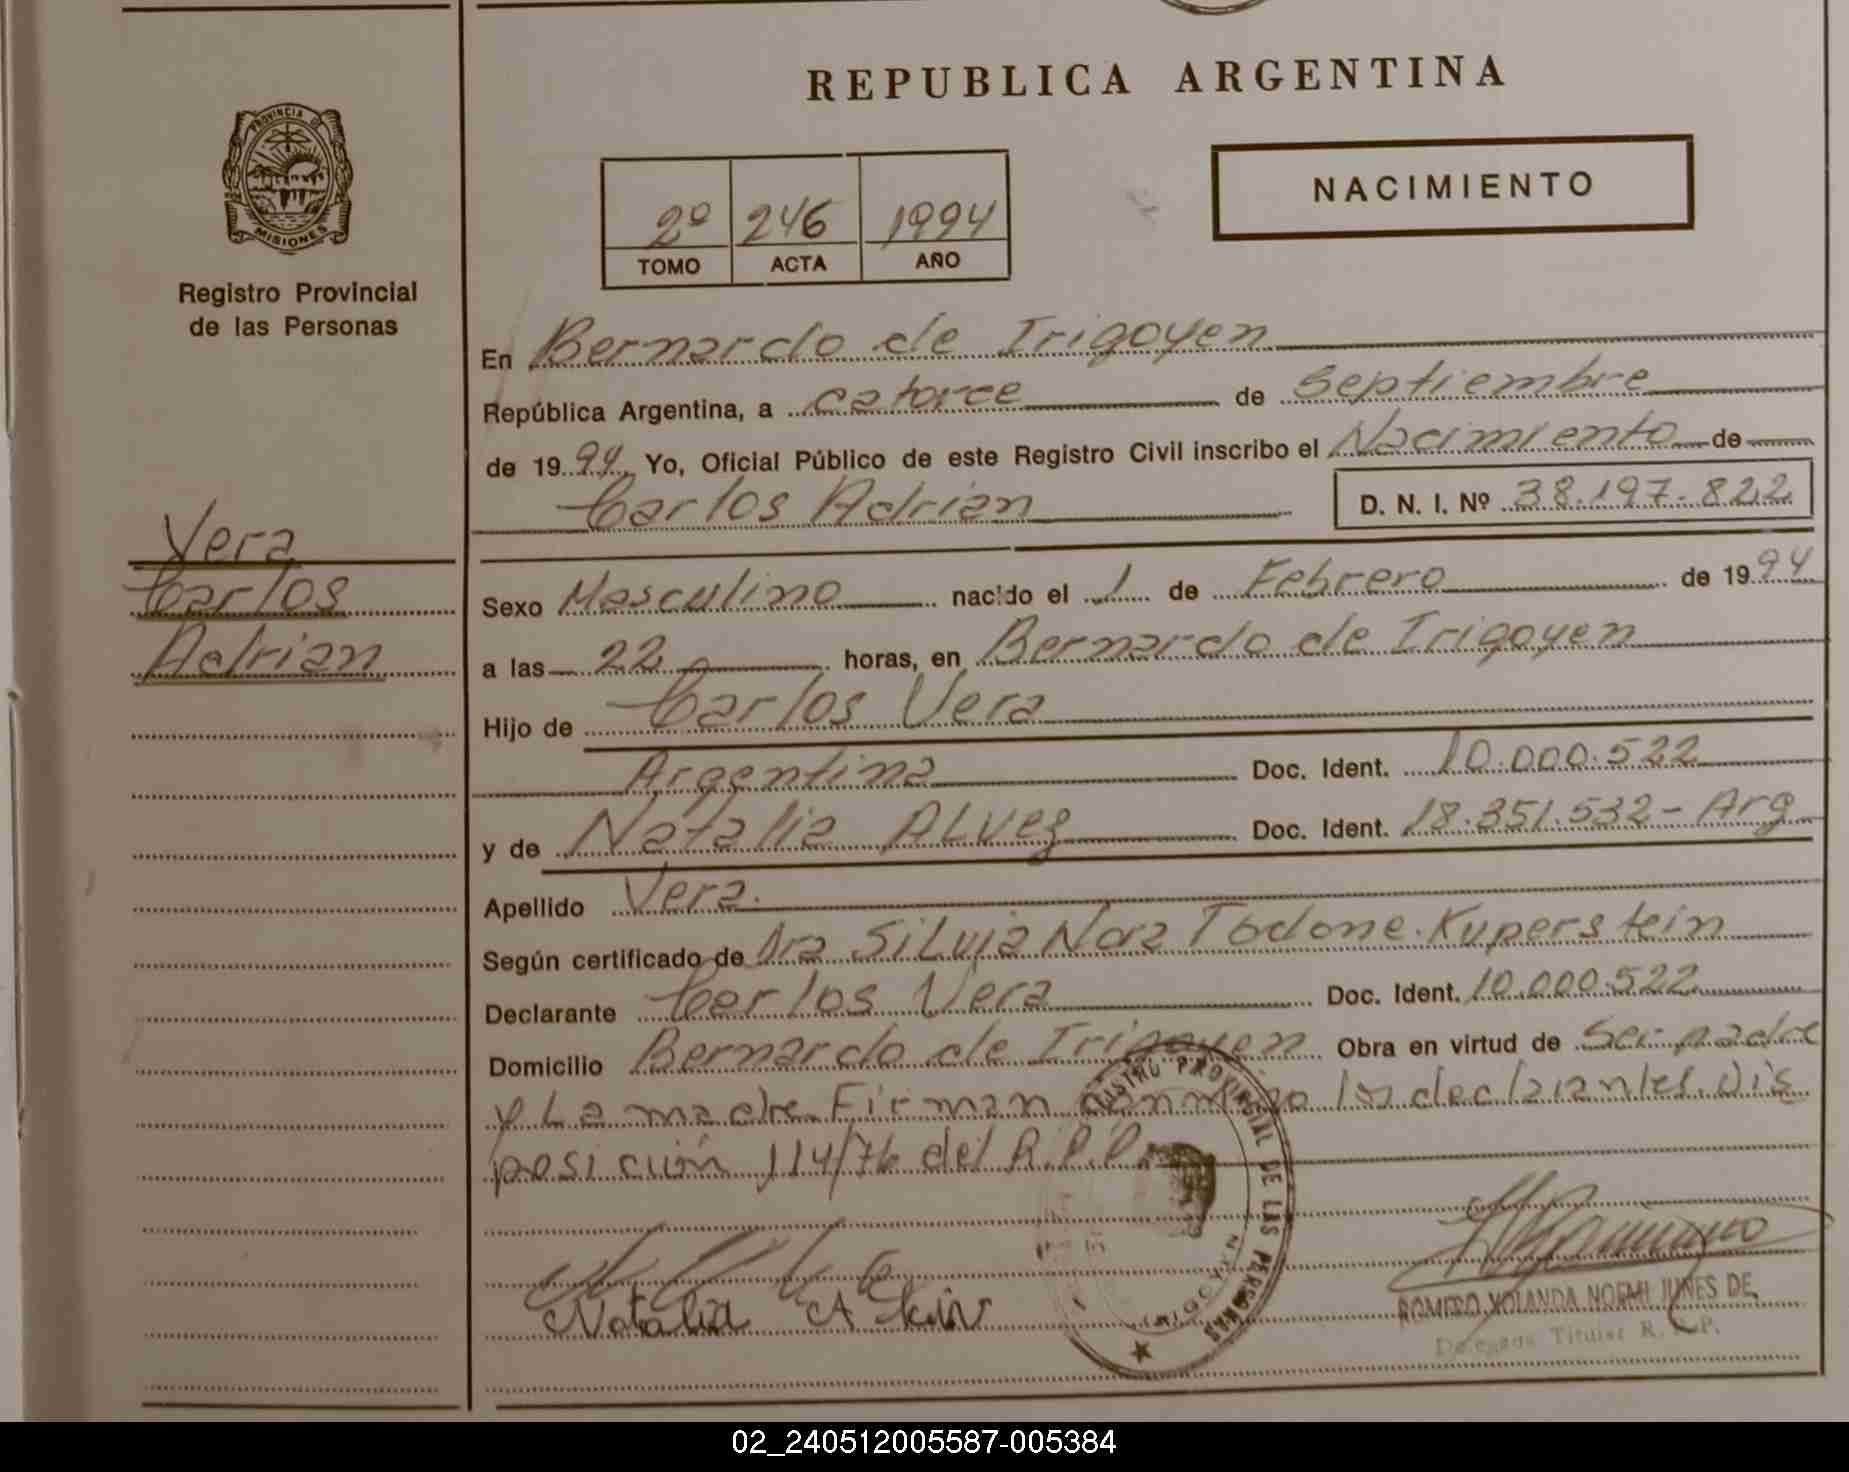 REPUBLICA ARGENTINA
PROVINCIA DE
MISIONES
Registro Provincial
de las Personas
NACIMIENTO
2º 246 1994
TOMO ACTA AÑO
En Bernardo de Irigoyen
República Argentina, a catorce de Septiembre
de 1994 Yo, Oficial Público de este Registro Civil inscribo el Nacimiento de
Carlos Adrian D. N. I. Nº 38.197.822
Vera
Carlos
Adrian
Sexo Masculino nacido el 1 de Febrero de 1994
a las 22 horas, en Bernardo de Irigoyen
Hijo de Carlos Vera
Argentina Doc. Ident. 10.000.522
y de Natalia ALvez Doc. Ident. 18.351.532 - Arg
Apellido Vera.
Según certificado de Dra SiLvia Nora Todone. Kuperstein
Declarante Carlos Vera Doc. Ident. 10.000.522
Domicilio Bernardo de Irigoyen Obra en virtud de Ser padre
y La madre. Firman conmigo los declarantes. Dis
posición 114/76 del R.P.P.
REGISTRO PROVINCIAL DE LAS PERSONAS
Natalia A
ROMERO YOLANDA NOEMI JUNES DE
Delegada Titular R. P. P.
02_240512005587-005384